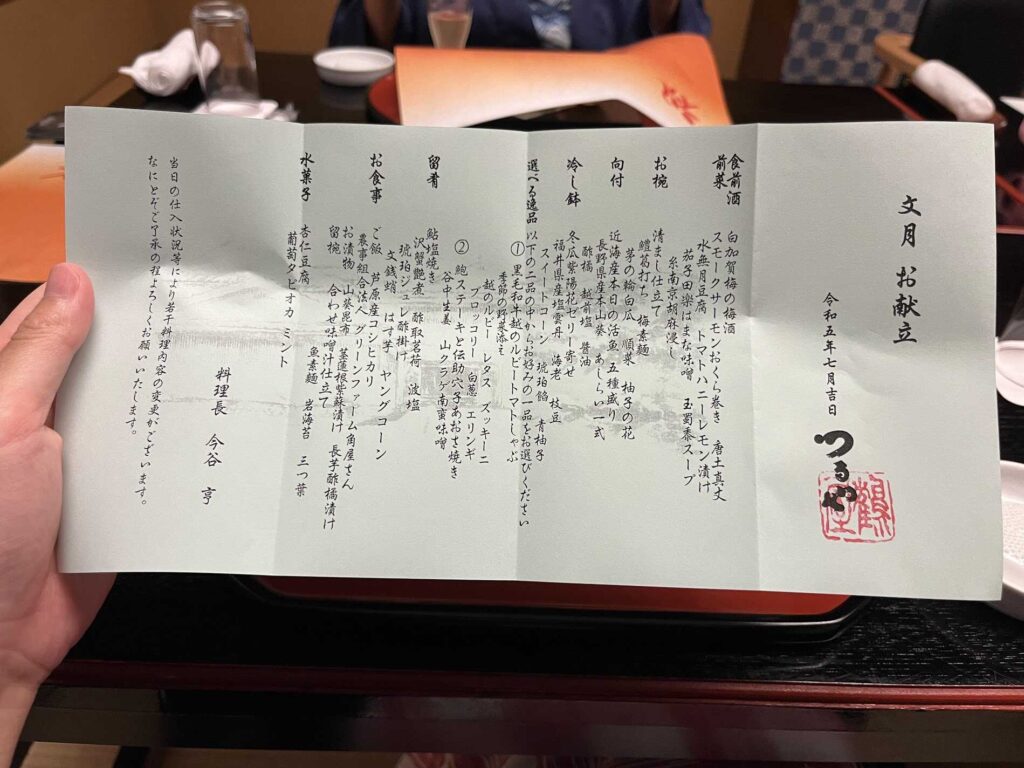 文月 お献立
令和五年七月吉日
つるや
食前酒 白加賀梅の梅酒
前菜 スモークサーモンおくら巻き 唐土真丈
水無月豆腐 トマトハニーレモン漬け
茄子田楽はまな味噌 玉蜀黍スープ
糸南京胡麻浸し
お椀 清まし仕立て
鱧葛打ち 梅素麺
芽の輪白瓜 順菜 柚子の花
向付 近海産本日の活魚 五種盛り
長野県産本山葵 あしらい一式
酢橘 越前塩 醤油
冷し鉢 冬瓜紫陽花ゼリー寄せ
福井県産塩雲丹 海老 枝豆
スイートコーン 琥珀餡 青柚子
選べる逸品 以下の二品の中からお好みの一品をお選びください
① 黒毛和牛越のルビートマトしゃぶ
季節の野菜添え
越のルビー レタス ズッキーニ
ブロッコリー 白葱 エリンギ
② 鮑ステーキと伝助穴子あおさ焼き
谷中生姜 山クラゲ南蛮味噌
留肴 鮎塩焼き
沢蟹艶煮 酢取茗荷 波塩
琥珀ジュレ酢掛け
文銭蛸 はす芋 ヤングコーン
お食事 ご飯 芦原産コシヒカリ
農事組合法人 グリーンファーム角屋さん
お漬物 山葵昆布 茎蓮根紫蘇漬け 長芋酢橘漬け
留椀 合わせ味噌汁仕立て
魚素麺 岩海苔 三つ葉
水菓子 杏仁豆腐
葡萄タピオカ ミント
料理長 今谷 亨
当日の仕入状況等により若干料理内容の変更がございます。
なにとぞご了承の程よろしくお願いいたします。